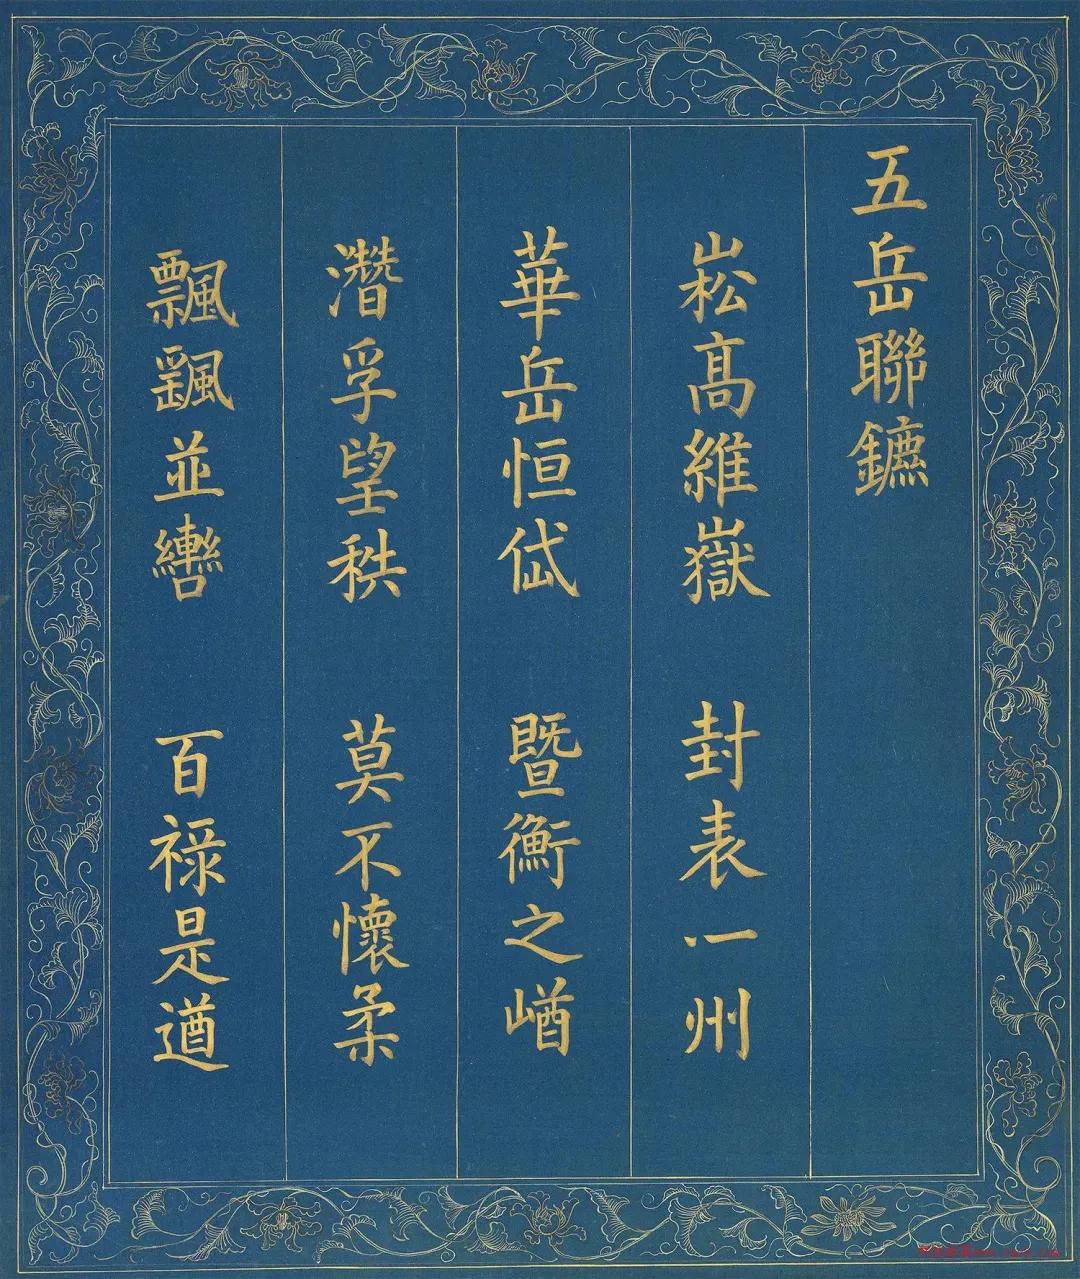 五岳聯鑣
崧高維嶽　封表一州
華岳恒岱　暨衡之崷
潛孚望秩　莫不懷柔
飄颻並轡　百祿是遒